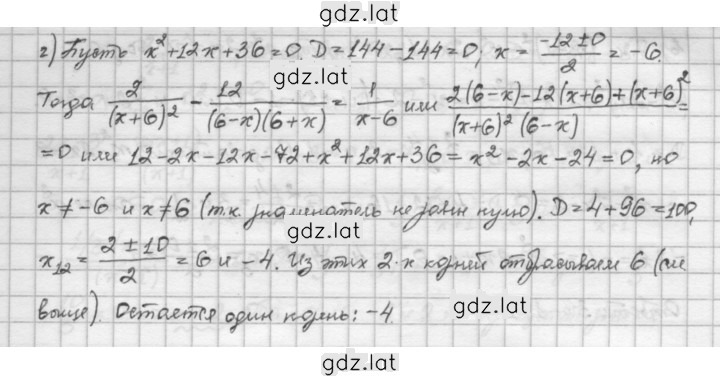 gdz.lat
г) Пусть x²+12x+36=0. D=144-144=0; x = \frac{-12±0}{2} = -6.
gdz.lat
Тогда \frac{2}{(x+6)^2} - \frac{12}{(6-x)(6+x)} = \frac{1}{x-6} или \frac{2(6-x)-12(x+6)+(x+6)^2}{(x+6)^2(6-x)} =
=0 или 12-2x-12x-72+x²+12x+36=x²-2x-24=0, но
x≠-6 и x≠6 (т.к. знаменатель не равен нулю). D=4+96=100,
gdz.lat
x_{12} = \frac{2±10}{2} = 6 и -4. Из этих 2-х корней отбрасываем 6 (см
выше). Остается один корень: -4.
gdz.lat
gdz.lat